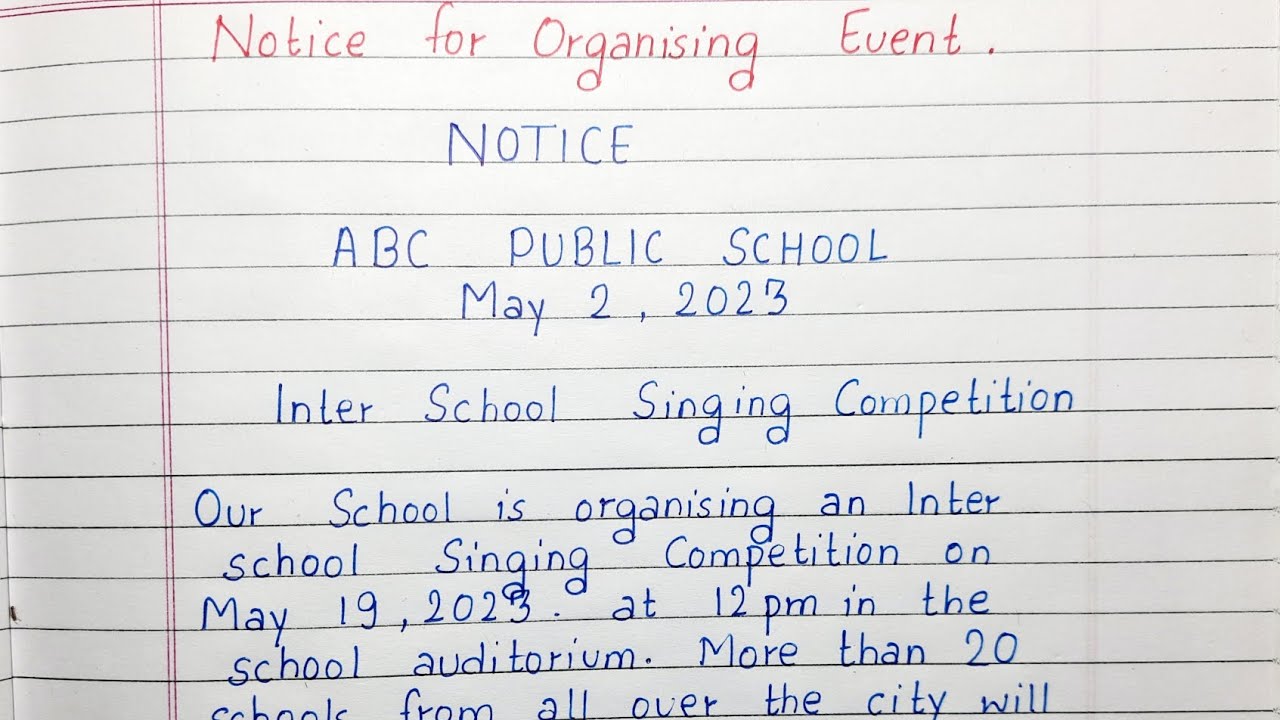 Notice for Organising Event.
NOTICE
ABC PUBLIC SCHOOL
May 2, 2023
Inter School Singing Competition
Our School is organising an Inter
school Singing Competition on
May 19, 2023. at 12 pm in the
school auditorium. More than 20
schools from all over the city will